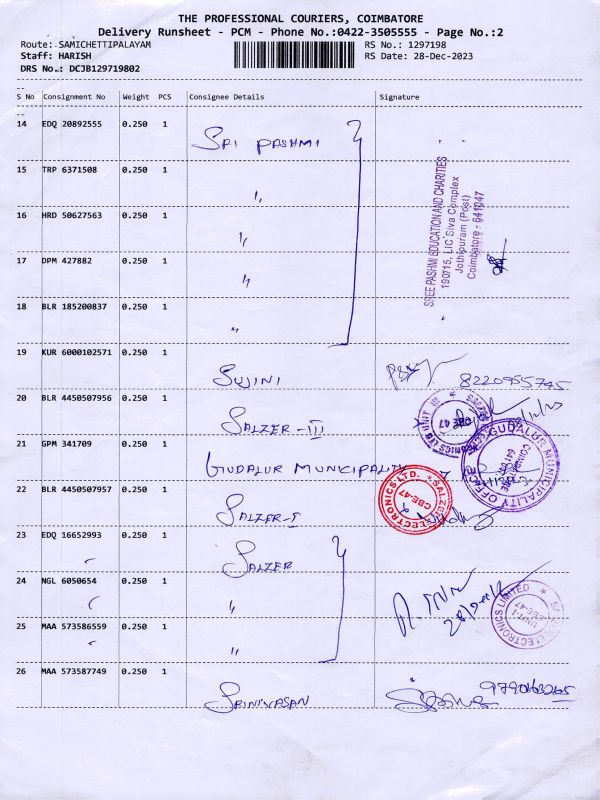 THE PROFESSIONAL COURIERS, COIMBATORE
Delivery Runsheet - PCM - Phone No.:0422-3505555 - Page No.:2
Route: SAMICHETTIPALAYAM RS No.: 1297198
Staff: HARISH RS Date: 28-Dec-2023
DRS No.: DCJB129719802
S No Consignment No Weight PCS Consignee Details Signature
14 EDQ 20892555 0.250 1 SRI PASHMI
15 TRP 6371508 0.250 1 "
16 HRD 50627563 0.250 1 "
17 DPM 427882 0.250 1 "
18 BLR 185200837 0.250 1 "
SREE PASHMI EDUCATION AND CHARITIES
190/15, LIC Siva Complex
Jothipuram (Post)
Coimbatore - 641047
19 KUR 6000102571 0.250 1 SUJINI 8220955745
20 BLR 4450507956 0.250 1 SALZER-III
21 GPM 341709 0.250 1 GUDALUR MUNICIPALITY
GUDALUR MUNICIPALITY OFFICE
COIMBATORE
22 BLR 4450507957 0.250 1 SALZER-I
SALZER ELECTRONICS LTD.
CBE-47
23 EDQ 16652993 0.250 1 SALZER
24 NGL 6050654 0.250 1 "
SALZER ELECTRONICS LIMITED
UNIT-I
CBE-47
25 MAA 573586559 0.250 1 "
26 MAA 573587749 0.250 1 SRINIVASAN